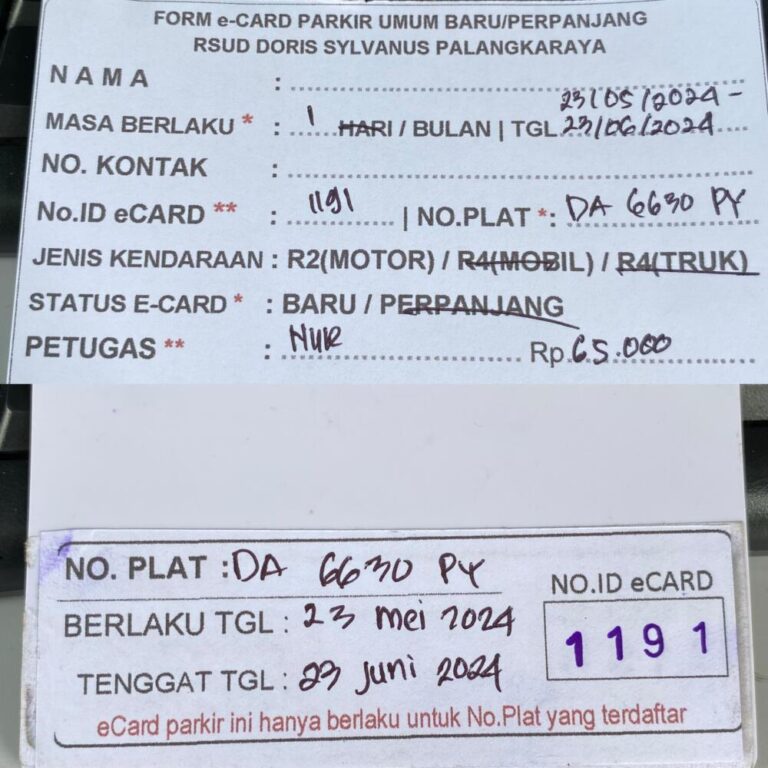 FORM e-CARD PARKIR UMUM BARU/PERPANJANG
RSUD DORIS SYLVANUS PALANGKARAYA
NAMA :
23/05/2024 -
MASA BERLAKU * : 1 HARI / BULAN | TGL. 23/06/2024
NO. KONTAK :
No.ID eCARD ** : 1191 | NO.PLAT *: DA 6630 PY
JENIS KENDARAAN : R2(MOTOR) / R4(MOBIL) / R4(TRUK)
STATUS E-CARD * : BARU / PERPANJANG
PETUGAS ** : NUR Rp. 65.000
NO. PLAT : DA 6630 PY
BERLAKU TGL : 23 mei 2024
TENGGAT TGL : 23 juni 2024
NO.ID eCARD
1191
eCard parkir ini hanya berlaku untuk No.Plat yang terdaftar